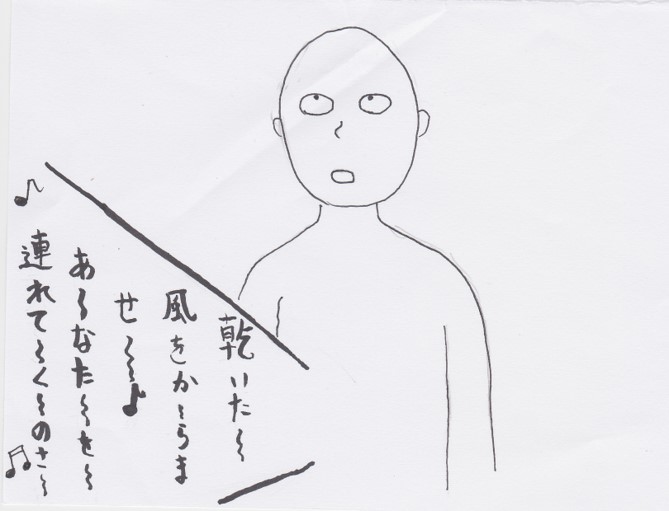 乾いた〜
風をか〜らま
せ〜〜♪
あ〜なた〜を〜
連れて〜く〜のさ〜